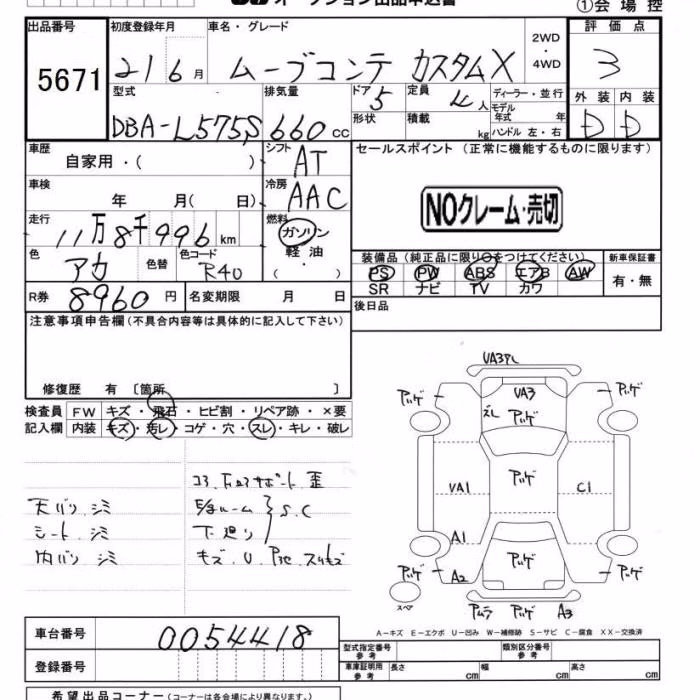 オークション出品申込書
①会場控
出品番号
5671
初度登録年月
21 6月
車名・グレード
ムーブコンテ カスタムX
2WD
・
4WD
評価点
3
型式
DBA-L575S
排気量
660cc
ドア
5
形状
定員
4人
積載
kg
ディーラー・並行
モデル
年式 年
ハンドル 左・右
外装 内装
D D
車歴
自家用・( )
シフト
AT
セールスポイント (正常に機能するものに限ります)
NOクレーム・売切
車検
年 月( 日)
冷房
AAC
走行
11万8千996km
燃料
ガソリン
軽油・
( ・ )
色
アカ
色替
色コード
R40
装備品(純正品に限り○をつけてください)
PS PW ABS エアB AW
SR ナビ TV カワ
新車保証書
有・無
R券
8960円
名変期限 月 日
後日品
注意事項申告欄(不具合内容等は具体的に記入して下さい)
修復歴 有 〔箇所 〕
検査員
記入欄
FW キズ・飛石・ヒビ割・リペア跡・×要
内装 キズ・汚レ・コゲ・穴・スレ・キレ・破レ
コアサポート 歪
天バリ シミ
シート シミ
内バリ シミ
S.C
下廻リ
キズ.U.
VA3
アハゲ
VA3
アハゲ
アハゲ
VA1
C1
A1
A2
アハゲ
スペア
A3
A-キズ E-エクボ U-凹み W-補修跡 S-サビ C-腐食 XX-交換済
車台番号
0054418
登録番号
型式指定番号
参考
類別区分番号
参考
車庫証明用
参考
長さ cm
幅 cm
高さ cm
希望出品コーナー(コーナーは各会場により異なります。)